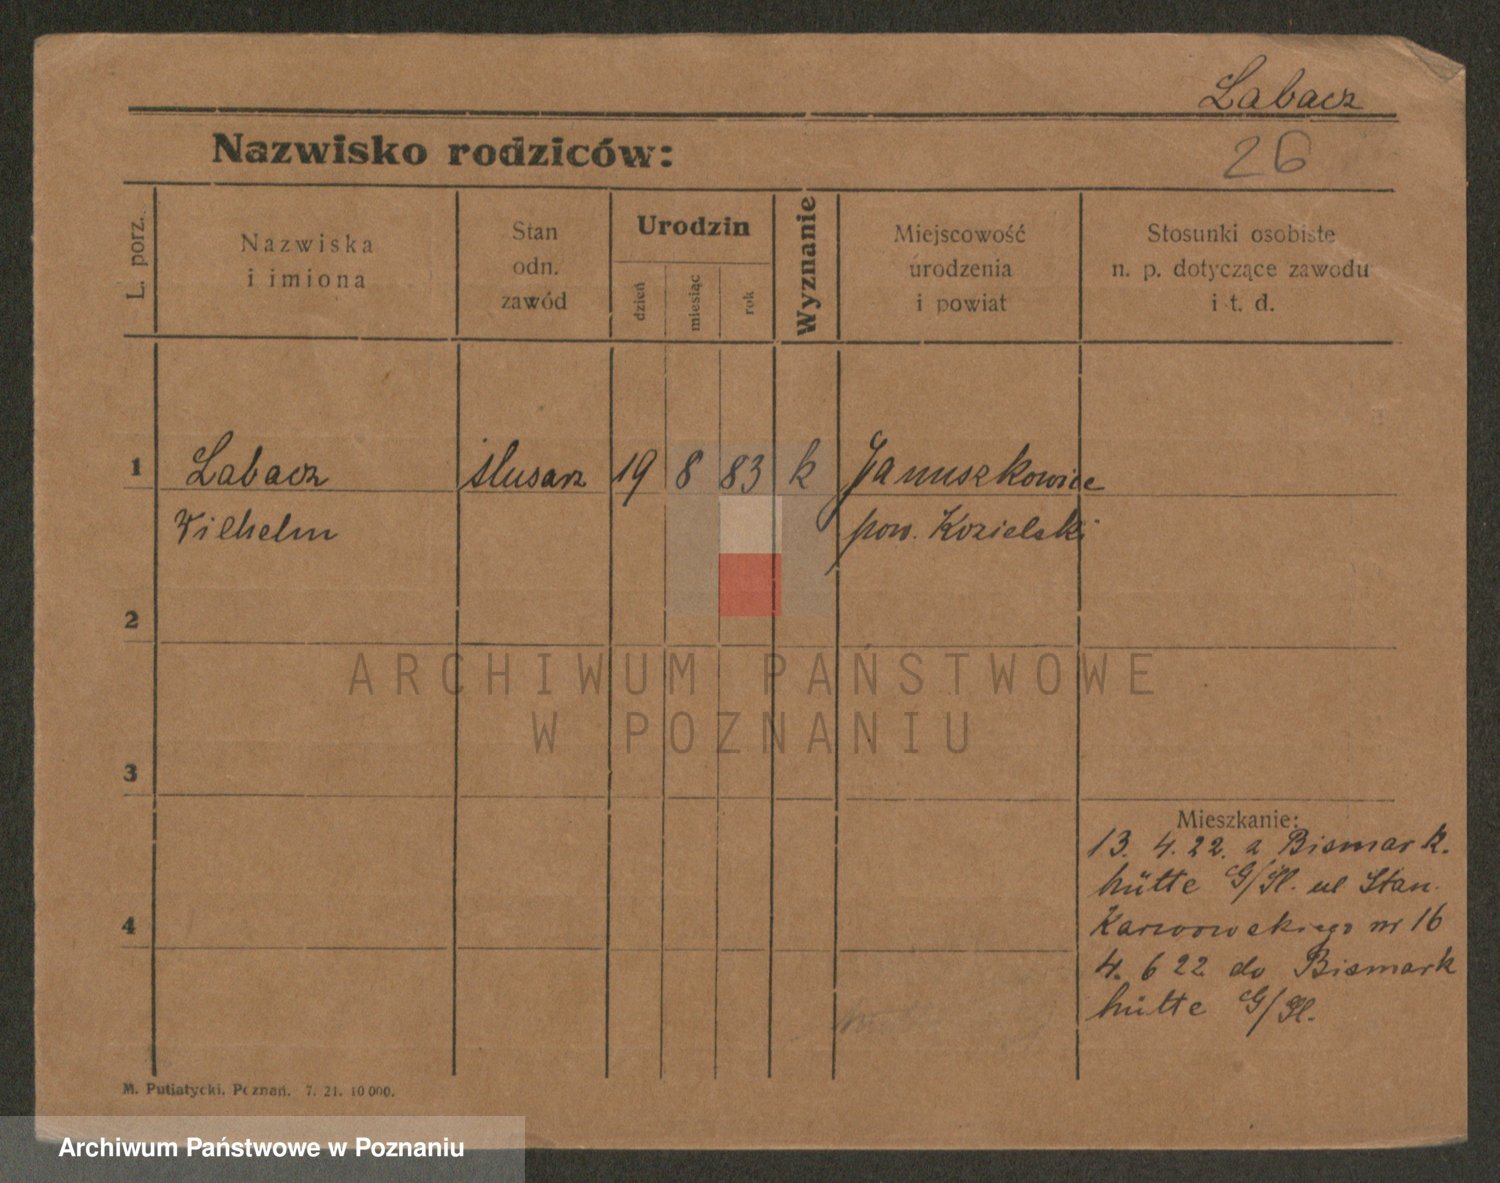 Labacz
Nazwisko rodziców:
26
L. porz.
Nazwiska
i imiona
Stan
odn.
zawód
Urodzin
dzień
miesiąc
rok
Wyznanie
Miejscowość
urodzenia
i powiat
Stosunki osobiste
n. p. dotyczące zawodu
i t. d.
1 Labacz ślusarz 19 8 83 k Januszkowice
Wilhelm pow. Kozielski
2
ARCHIWUM PAŃSTWOWE
W POZNANIU
3
Mieszkanie:
13. 4. 22. z Bismark.
hütte G/Sl. ul Stan.
4 Karwowskiego nr 16
4. 6 22 do Bismark
hütte G/Sl.
M. Putiatycki, Poznań. 7. 21. 10 000.
Archiwum Państwowe w Poznaniu